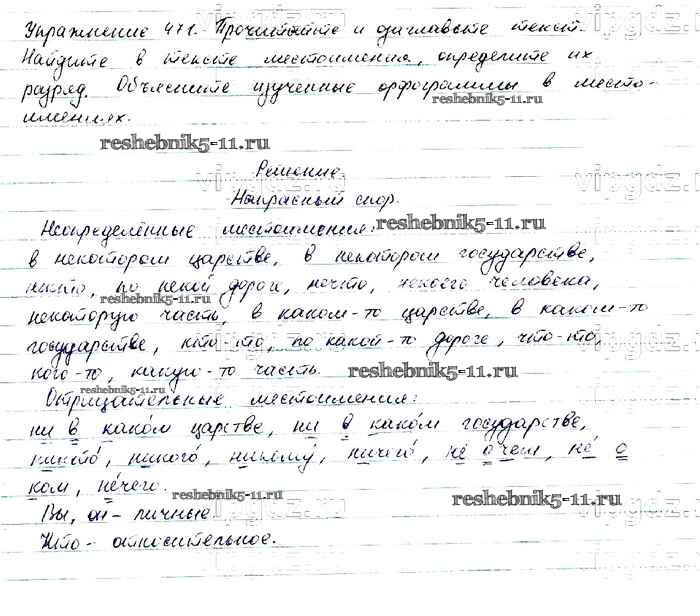 Упражнение 471. Прочитайте и озаглавьте текст.
Найдите в тексте местоимения, определите их
разряд. Объясните изученные орфограммы в место-
имениях.
reshebnik5-11.ru
Решение.
Напрасный спор.
Неопределённые местоимения:
в некотором царстве, в некотором государстве,
некто, по некой дороге, нечто, некоего человека,
некоторую часть, в каком-то царстве, в каком-то
государстве, кто-то, по какой-то дороге, что-то,
кого-то, какую-то часть.
Отрицательные местоимения:
ни в каком царстве, ни в каком государстве,
никто, никого, ничему, ничего, не о чем, не о
ком, нечего.
Вы, он - личные.
Что - относительное.